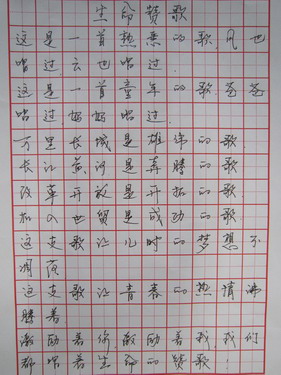 生命赞歌
这是一首熟悉的歌风也
唱过云也唱过
这是一首童年的歌爸爸
唱过妈妈唱过
万里长城是雄伟的歌
长江黄河是奔腾的歌
改革开放是开拓的歌
加入世贸是成功的歌
这支歌让儿时的梦想不
凋落
这支歌让青春的热情沸
腾着
激励着你激励着我我们
都唱着生命的赞歌!